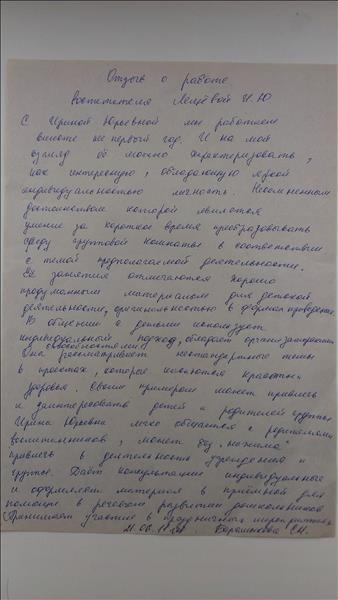 Отзыв о работе
воспитателя Лещёвой И.Ю
С Ириной Юрьевной мы работаем
вместе не первый год. И на мой
взгляд её можно характеризовать,
как интересную, обладающую яркой
индивидуальностью личность. Несомненным
достоинством которой является
умение за короткое время преобразовывать
среду групповой комнаты в соответствии
с темой предполагаемой деятельности.
Её занятия отмечаются хорошо
продуманным материалом для детской
деятельности, оригинальностью в формах проведения.
В общении с детьми использует
индивидуальный подход, обладает организаторскими
способностями.
Она рассматривает нестандартные темы
в проектах, которые касаются
здоровья. Своим примером может привлечь
и заинтересовать детей и родителей группы
Ирина Юрьевна легко общается с родителями
воспитанников, может без "нажима"
привлечь в деятельность учреждения и
группы. Даёт консультации индивидуальные
и оформляет материал в приёмной для
помощи в речевом развитии дошкольников
Принимает участие в праздничных мероприятиях